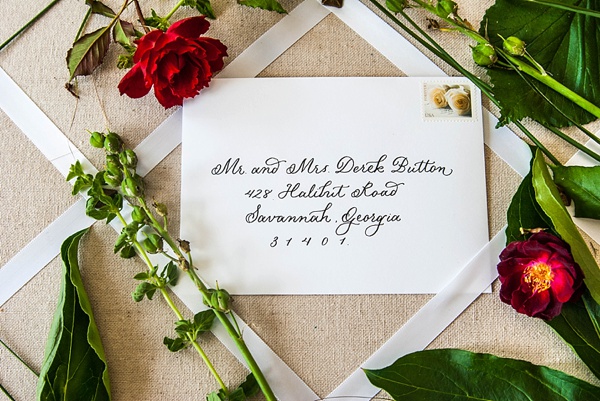 Mr. and Mrs. Derek Button
428 Halibit Road
Savannah, Georgia
31401.